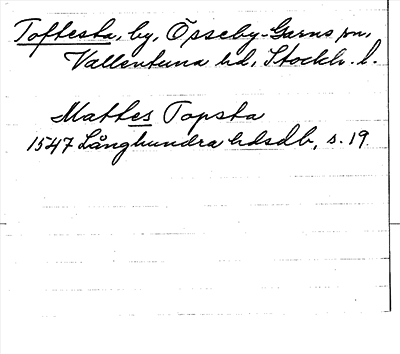 Toftesta, by, Össeby-Garns sn,
Vallentuna hd, Stockh. l.
Mattes Topsta
1547 Långhundra hdsdb, s. 19.